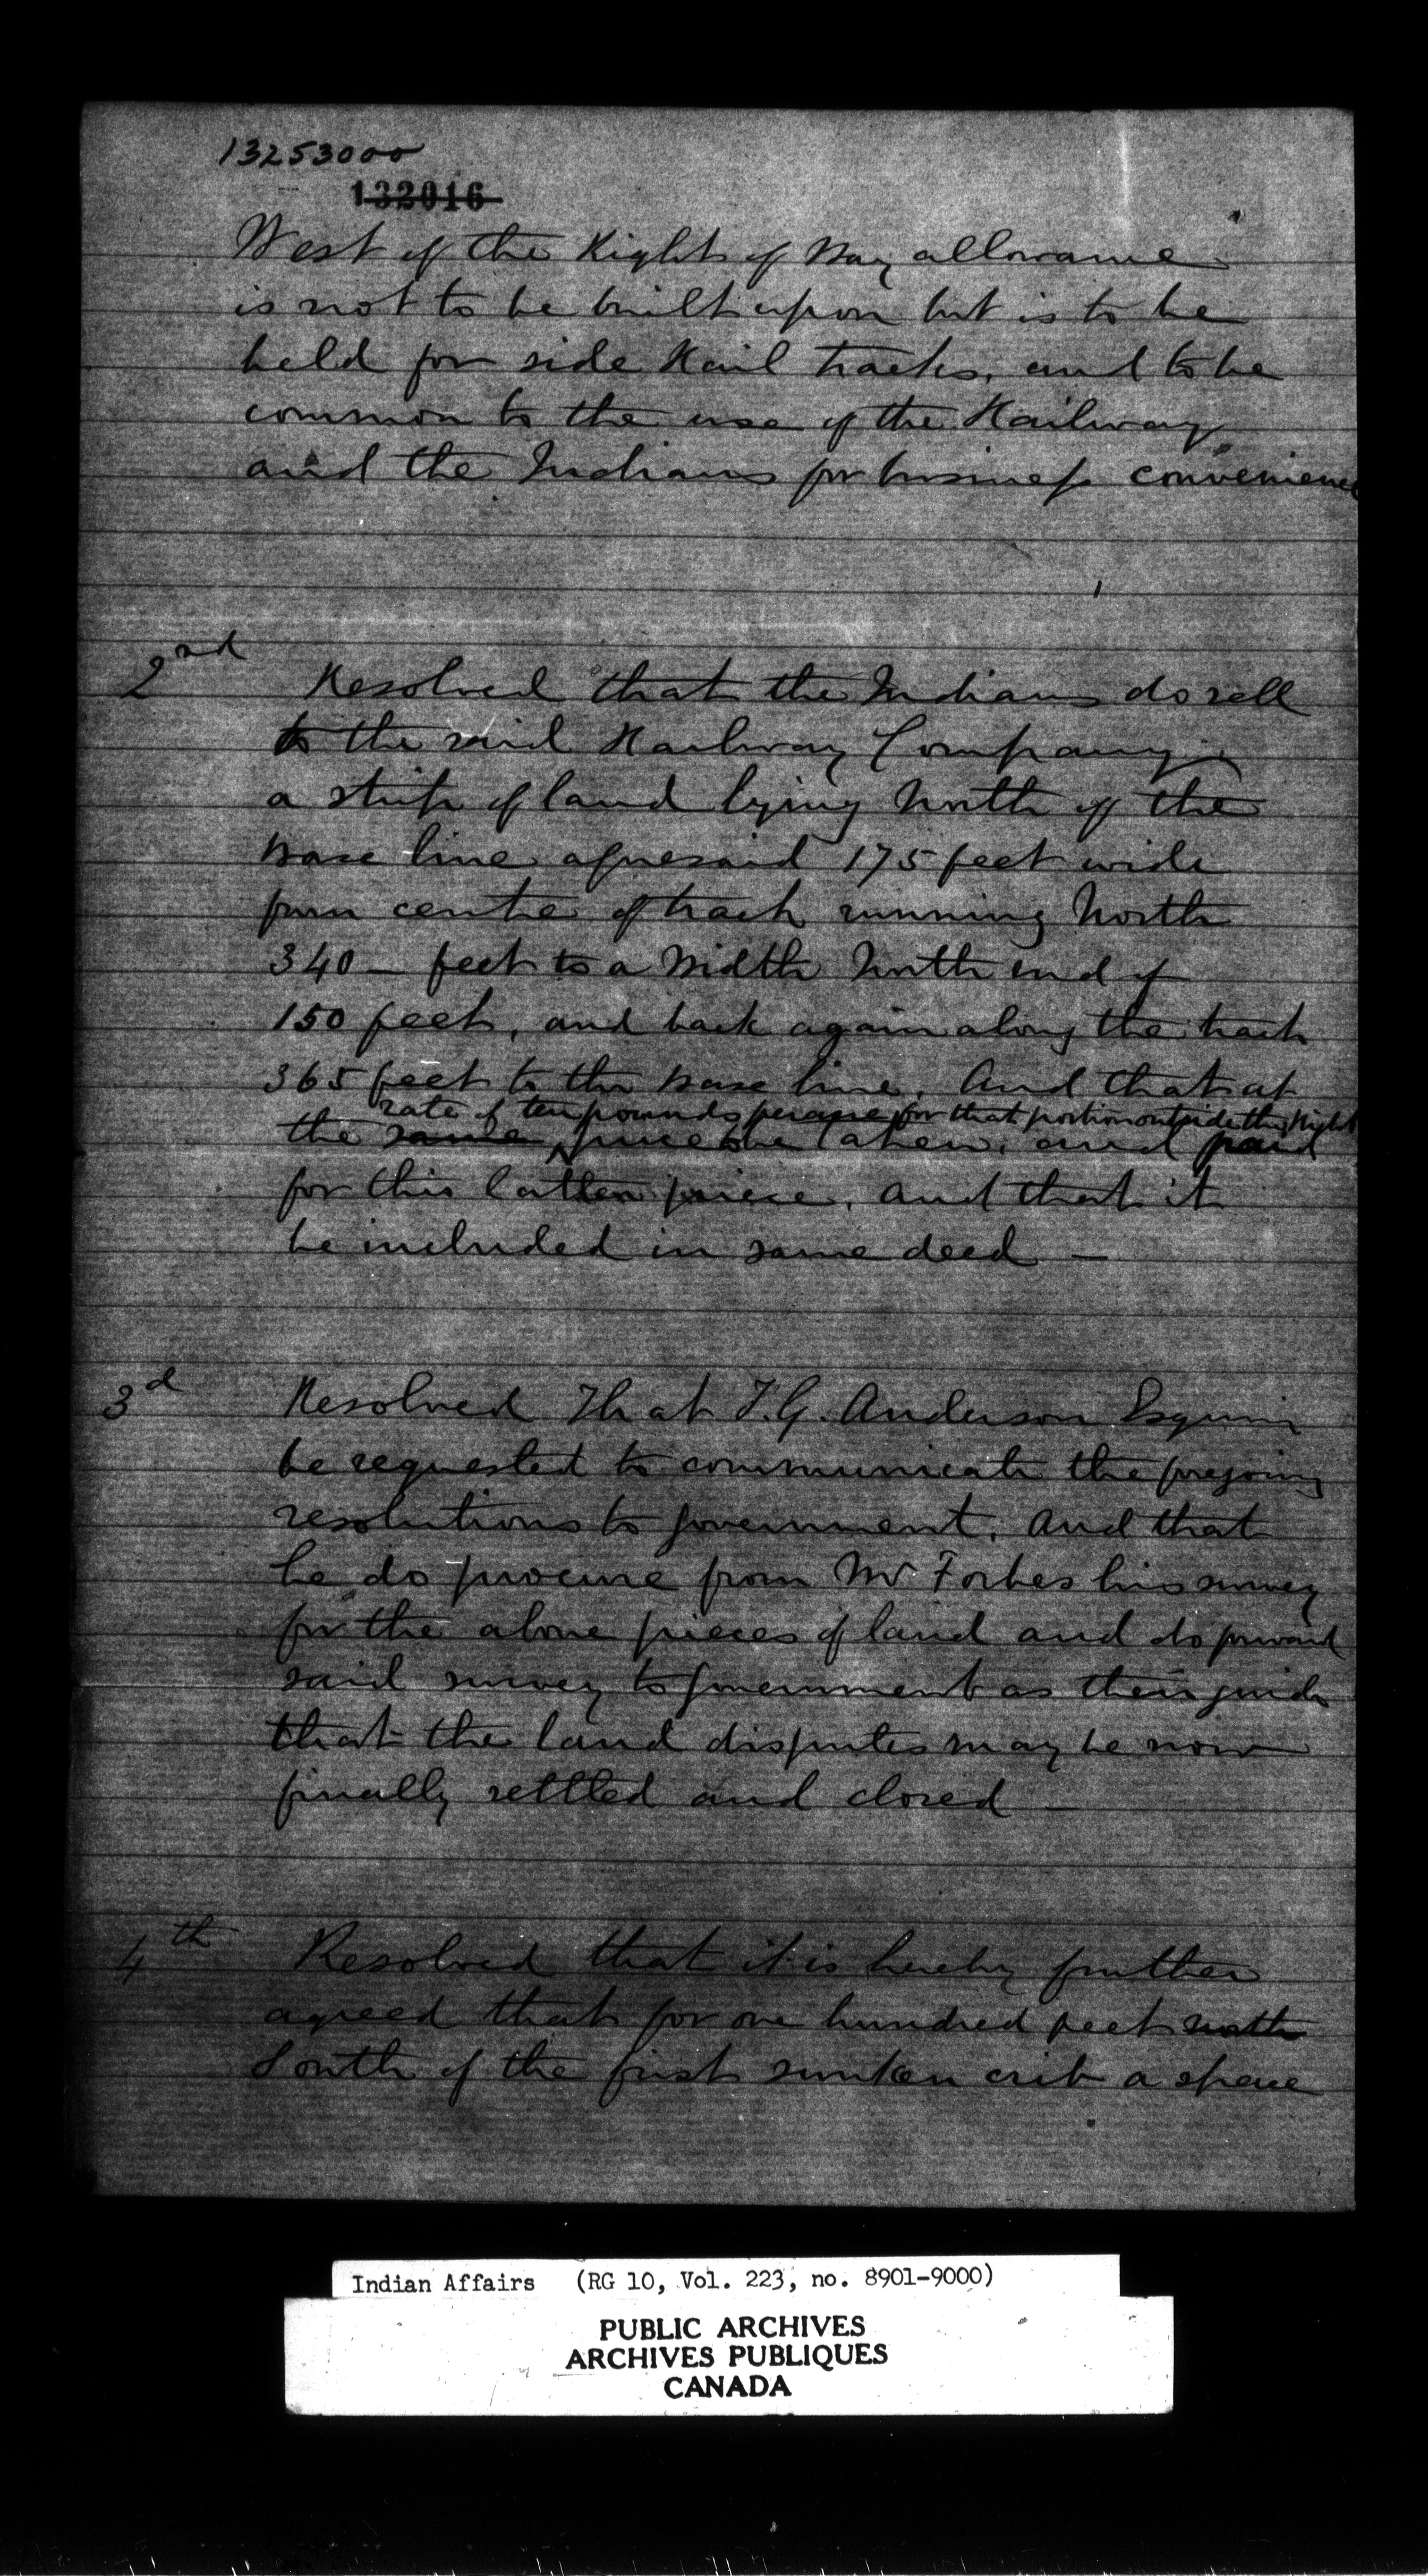 13253000
132016
West of the Right of Way allowance
is not to be built upon but is to be
held for side Rail tracks, and to be
common to the use of the Railway
and the Indians for business convenience
2nd Resolved that the Indians do sell
to the said Railway Company
a strip of land lying North of the
Base line aforesaid 175 feet wide
from centre of track running North
340 — feet to a Width North end of
150 feet, and back again along the track
365 feet to the Base line, And that at
rate of ten pounds per acre for that portion outside the Right
the same price be taken, and paid
for this latter piece, and that it
be included in same deed —
3d Resolved That T.G. Anderson Esquire
be requested to communicate the foregoing
resolutions to Government, And that
he do procure from Mr Forbes his survey
for the above pieces of land and do forward
said survey to Government as their guide
that the land disputes may be now
finally settled and closed —
4th Resolved that it is hereby further
agreed that for one hundred feet north
South of the first sunken crib a space
Indian Affairs (RG 10, Vol. 223, no. 8901-9000)
PUBLIC ARCHIVES
ARCHIVES PUBLIQUES
CANADA